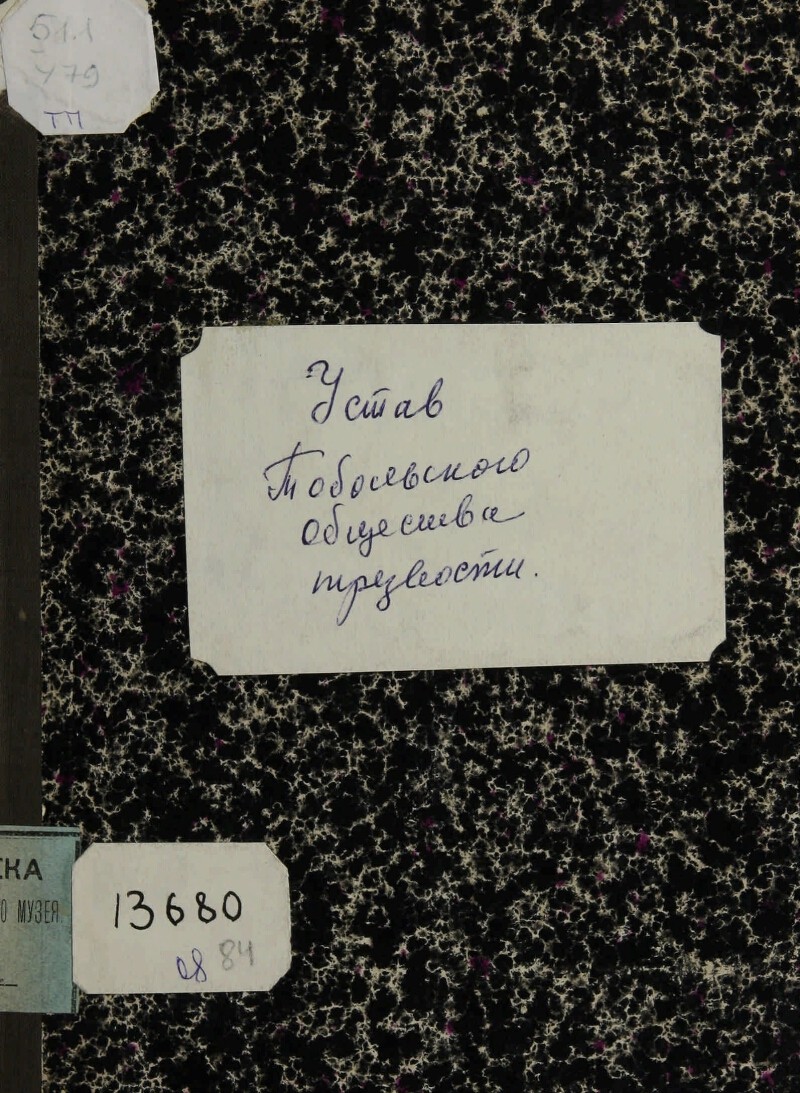 511
У79
ТП
Устав
Тобольского
общества
трезвости.
СКА
О МУЗЕЯ
13680
84